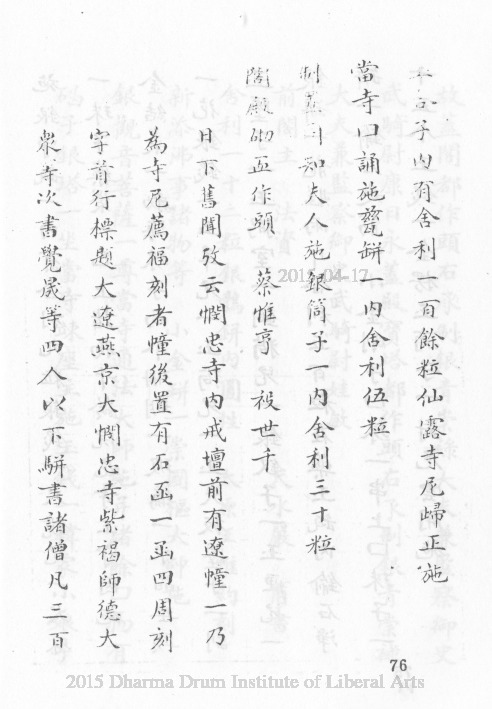 子內有舍利一百餘粒仙露寺尼歸正施
當寺口誦施甆缾一內舍利伍粒
制置司知夫人施銀筒子一內舍利三十粒
閣殿砌匠作頭 蔡惟亮 祋世千
日下舊聞攷云憫忠寺內戒壇前有遼幢一乃
為寺尼薦福刻者幢後置有石函一函四周刻
字首行標題大遼燕京大憫忠寺紫褐師德大
衆等次書覺晟等四人以下駢書諸僧凡三百
2015-04-17
76
2015 Dharma Drum Institute of Liberal Arts